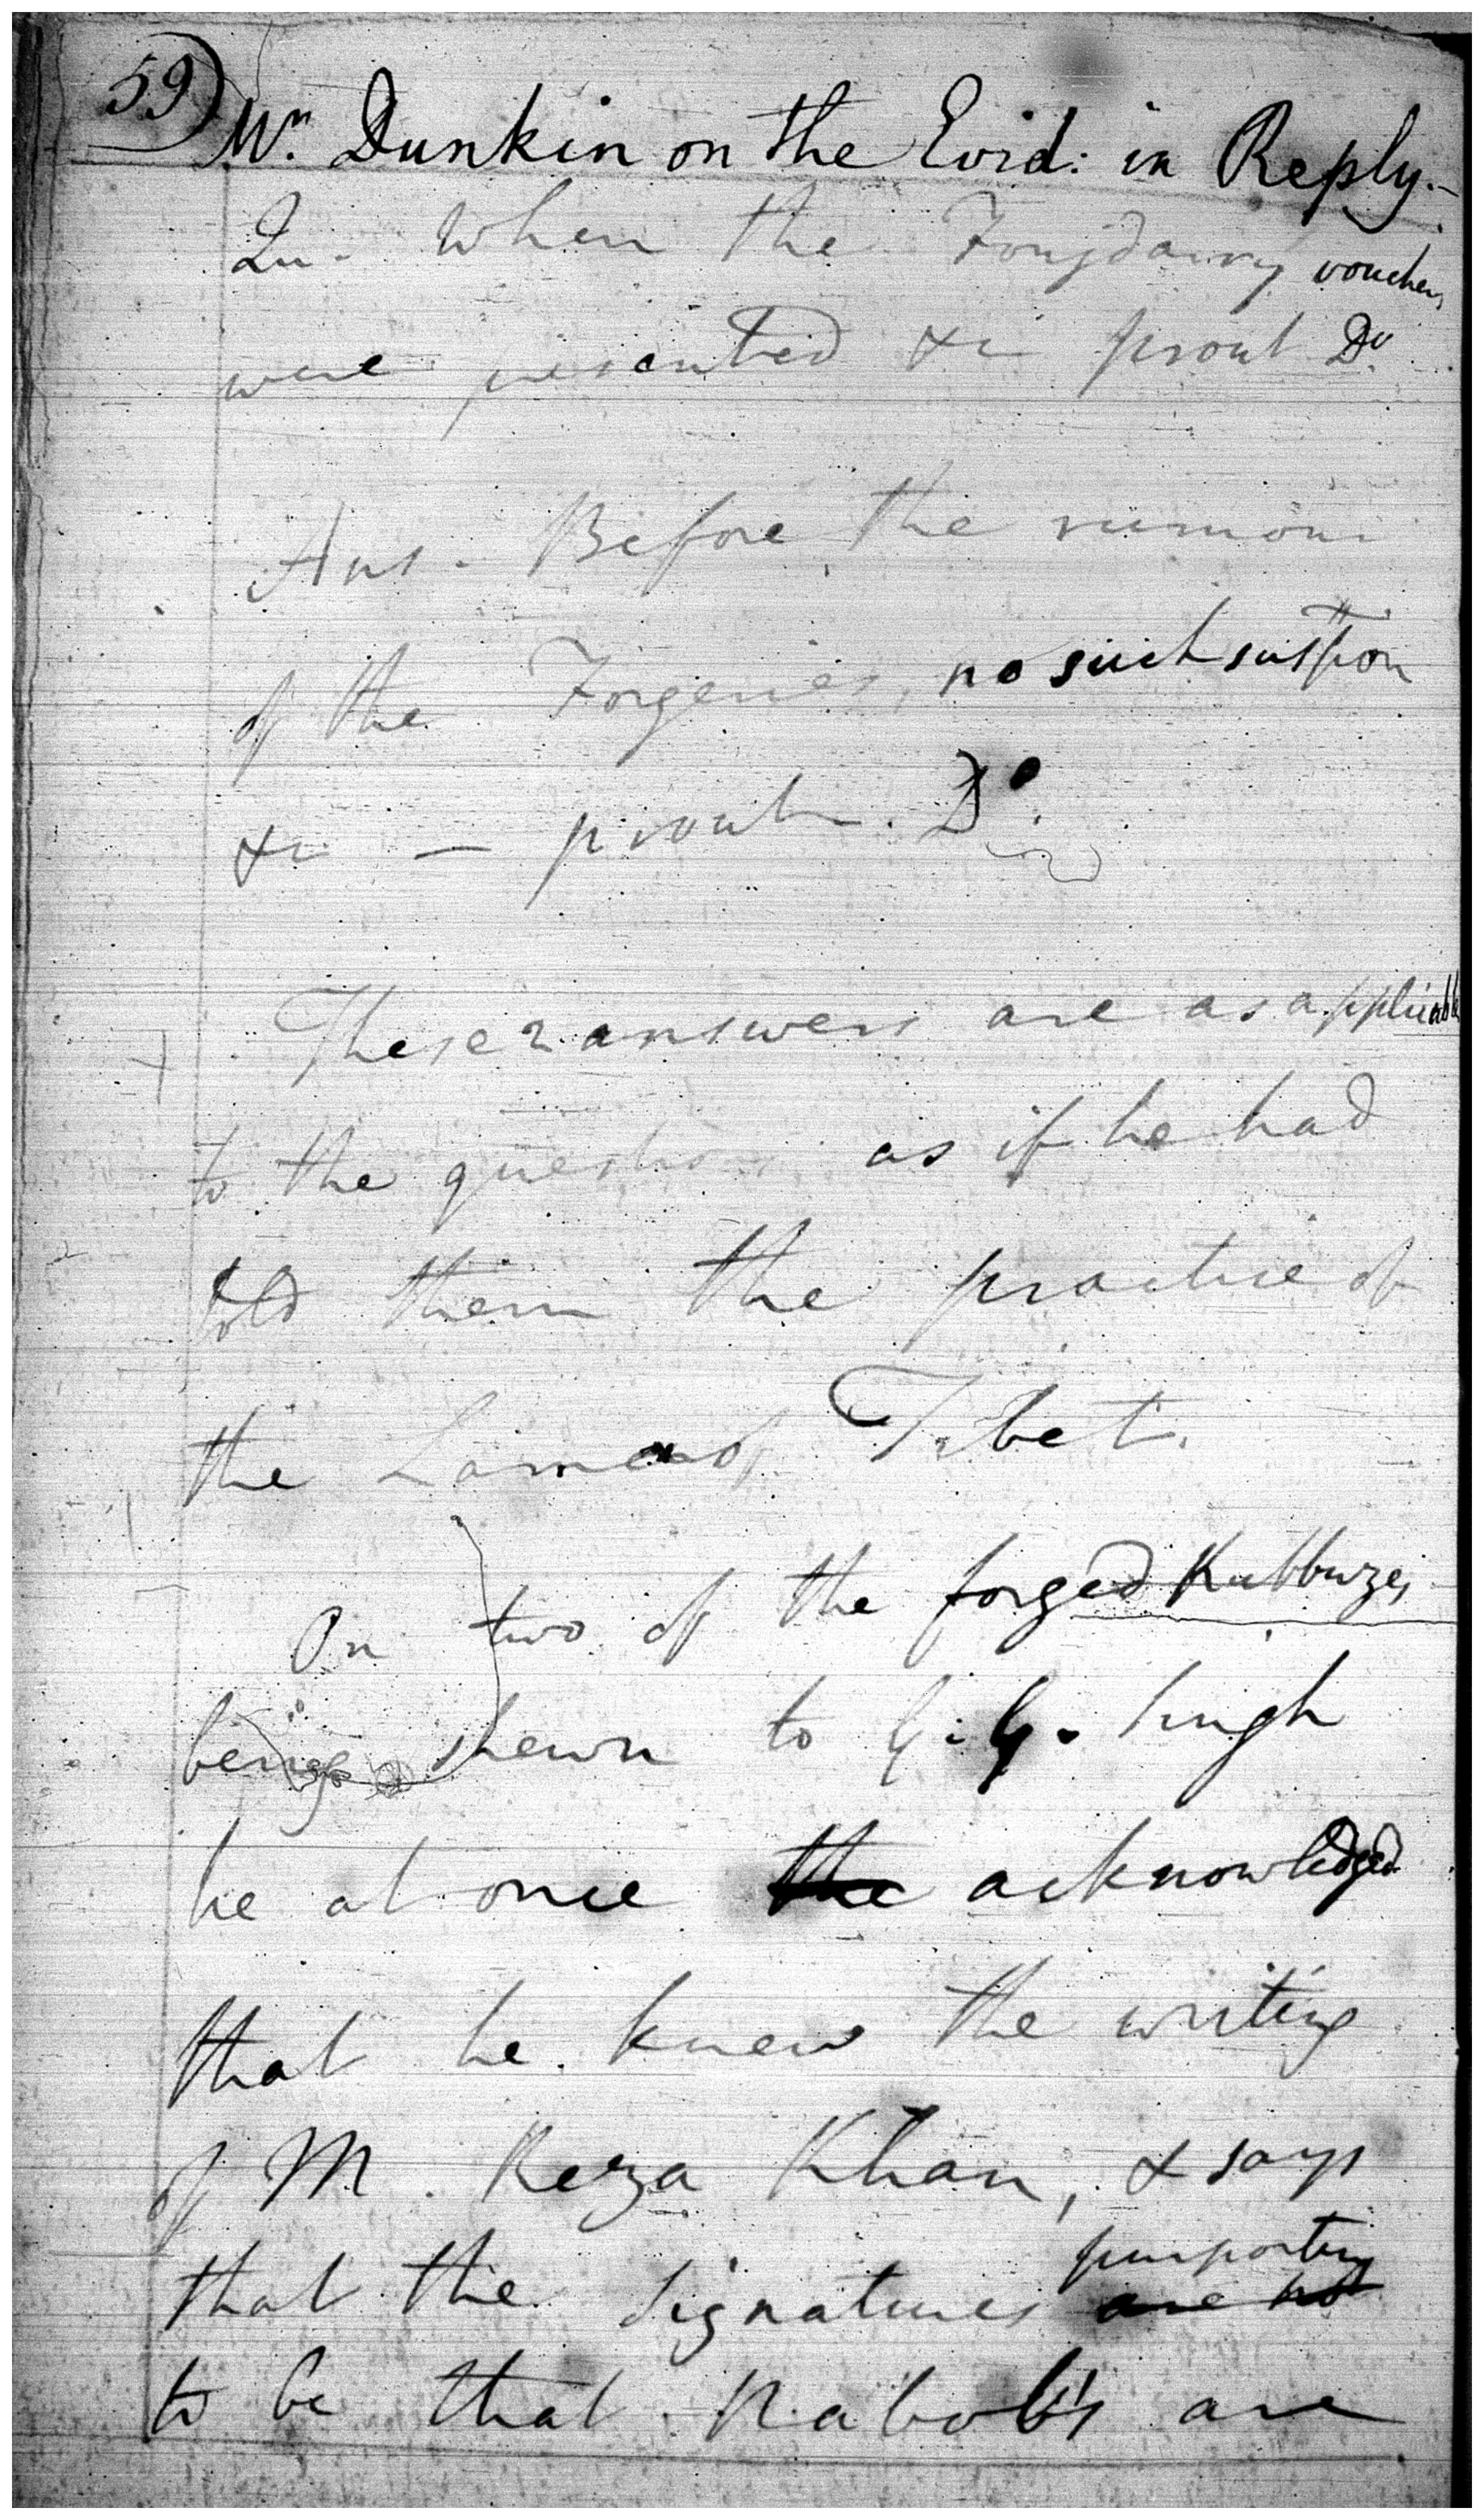 59) Mr. Dunkin on the Evid: in Reply.-
Qu. When the Foujdarry vouchers
were presented &c prout Do.
Ans. Before the rumour
of the Forgeries, no such
&c — prout. Do.
These 2 answers are as applicable
to the question as if he had
told them the practice of
the Lama of Tibet.
On two of the forged Kubbuzes
being shewn to G. G. Singh
he at once the acknowledged
that he knew the writing
of M. Reza Khan, & says
purporting
that the signatures are not
to be that Nabob's are